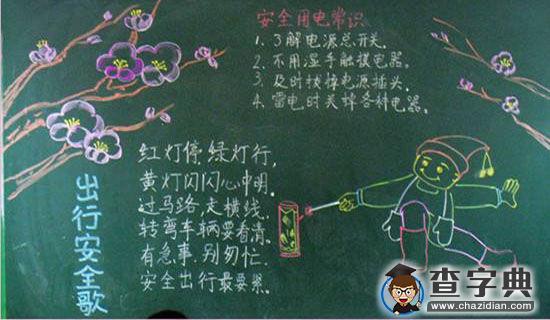 安全用电常识
1、3解电源总开关。
2、不用湿手触摸电器。
3、及时拔掉电源插头。
4、雷电时关掉各种电器。
出行安全歌
红灯停,绿灯行,
黄灯闪闪心中明。
过马路,走横线,
转弯车辆要看清。
有急事,别匆忙,
安全出行最要紧。
查字典
www.chazidian.com